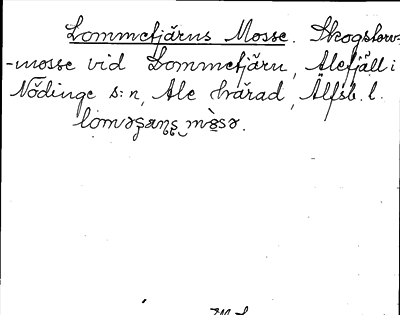 Lommetjärns Mosse. Skogstorv-
-mosse vid Lommetjärn, Alefjäll i
Nödinge s:n, Ale härad, Älfsb. l.